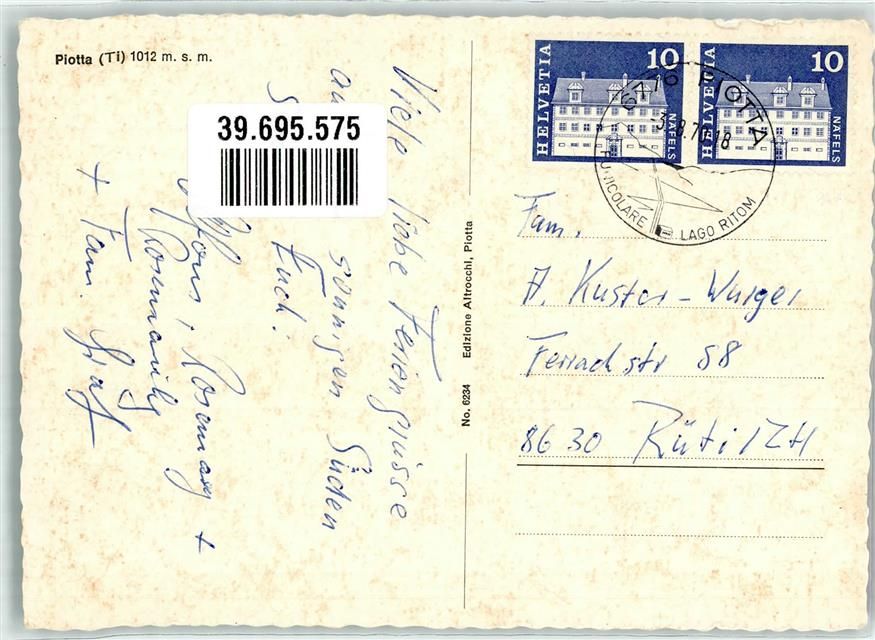 Piotta (Ti) 1012 m. s. m.
39.695.575
Viele liebe Feriengrüsse
sonnigen Süden
Euch.
Alfons, Rosemary +
Rosmarily
+ Fam. Graf
No. 6234 Edizione Altrocchi, Piotta
HELVETIA 10 NÄFELS
HELVETIA 10 NÄFELS
6776 PIOTTA
-3.8.70-18
FUNICOLARE LAGO RITOM
Fam.
A. Kuster-Wurger
Ferrachstr 58
8630 Rüti/ZH